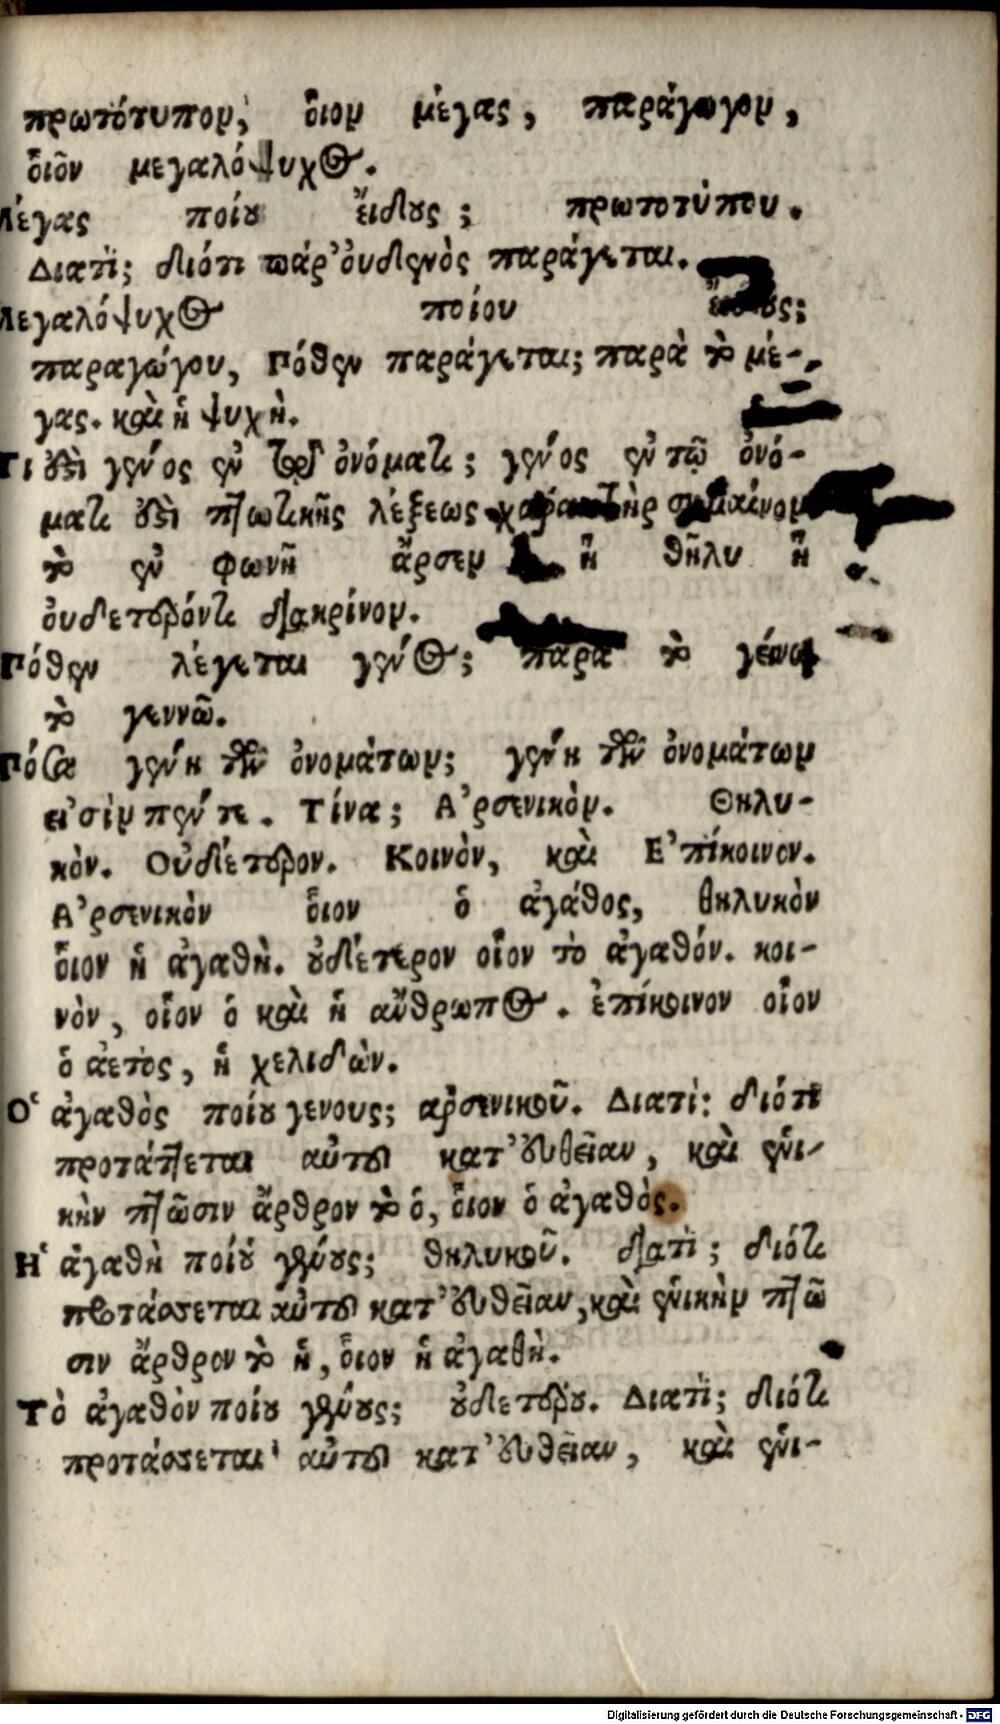 πρωτότυπον, ὅιον μέγας, παράγωγον,
ὅιον μεγαλόψυχος.
Μέγας ποίου ἔιδους; πρωτοτύπου.
Διατὶ; διότι παρ' ὀυδενὸς παράγεται.
Μεγαλόψυχος ποίου ἔιδους;
παραγώγου, Πόθεν παράγεται; παρὰ τὸ μέ-
γας. καὶ ἡ ψυχὴ.
Τι ἐστὶ γένος ἐν τῷ ὀνόματι; γένος ἐν τῷ ὀνό-
ματι ἐστὶ πτωτικῆς λέξεως χαρακτὴρ σημαίνομ
τὸ ἐν φωνῇ ἄρσεν ἢ θῆλυ ἢ
ὀυδετερόντι διακρίνον.
Πόθεν λέγεται γένος; παρὰ τὸ γένω
τὸ γεννῶ.
Πόσα γένη τῶν ὀνομάτων; γένη τῶν ὀνομάτων
εἰσὶν πέντε. Τίνα; Ἀρσενικὸν. Θηλυ-
κὸν. Οὐδέτερον. Κοινὸν, καὶ Ἐπίκοινον.
Ἀρσενικὸν ὅιον ὁ ἀγάθος, θηλυκὸν
ὅιον ἡ ἀγαθὴ. οὐδέτερον οἷον τὸ ἀγαθόν. κοι-
νὸν, οἷον ὁ καὶ ἡ ἄνθρωπος. ἐπίκοινον οἷον
ὁ ἀετὸς, ἡ χελιδὼν.
Ὁ ἀγαθὸς ποίου γενους; αρσενικοῦ. Διατὶ: διότι
προτάττεται αὐτοῦ κατ' ἐυθεῖαν, καὶ ἑνι-
κὴν πτῶσιν ἄρθρον τὸ ὁ, ὅιον ὁ ἀγαθὸς.
Ἡ ἀγαθὴ ποίου γένους; θηλυκοῦ. διατὶ; διότι
προτάσσεται αὐτοῦ κατ' ἐυθεῖαν, καὶ ἑνικὴν πτῶ
σιν ἄρθρον τὸ ἡ, ὅιον ἡ ἀγαθὴ.
Τὸ ἀγαθὸν ποίου γένους; οὐδετέρου. Διατὶ; διότι
προτάσσεται αὐτοῦ κατ' ἐυθεῖαν, καὶ ἑνι-
Digitalisierung gefördert durch die Deutsche Forschungsgemeinschaft - DFG